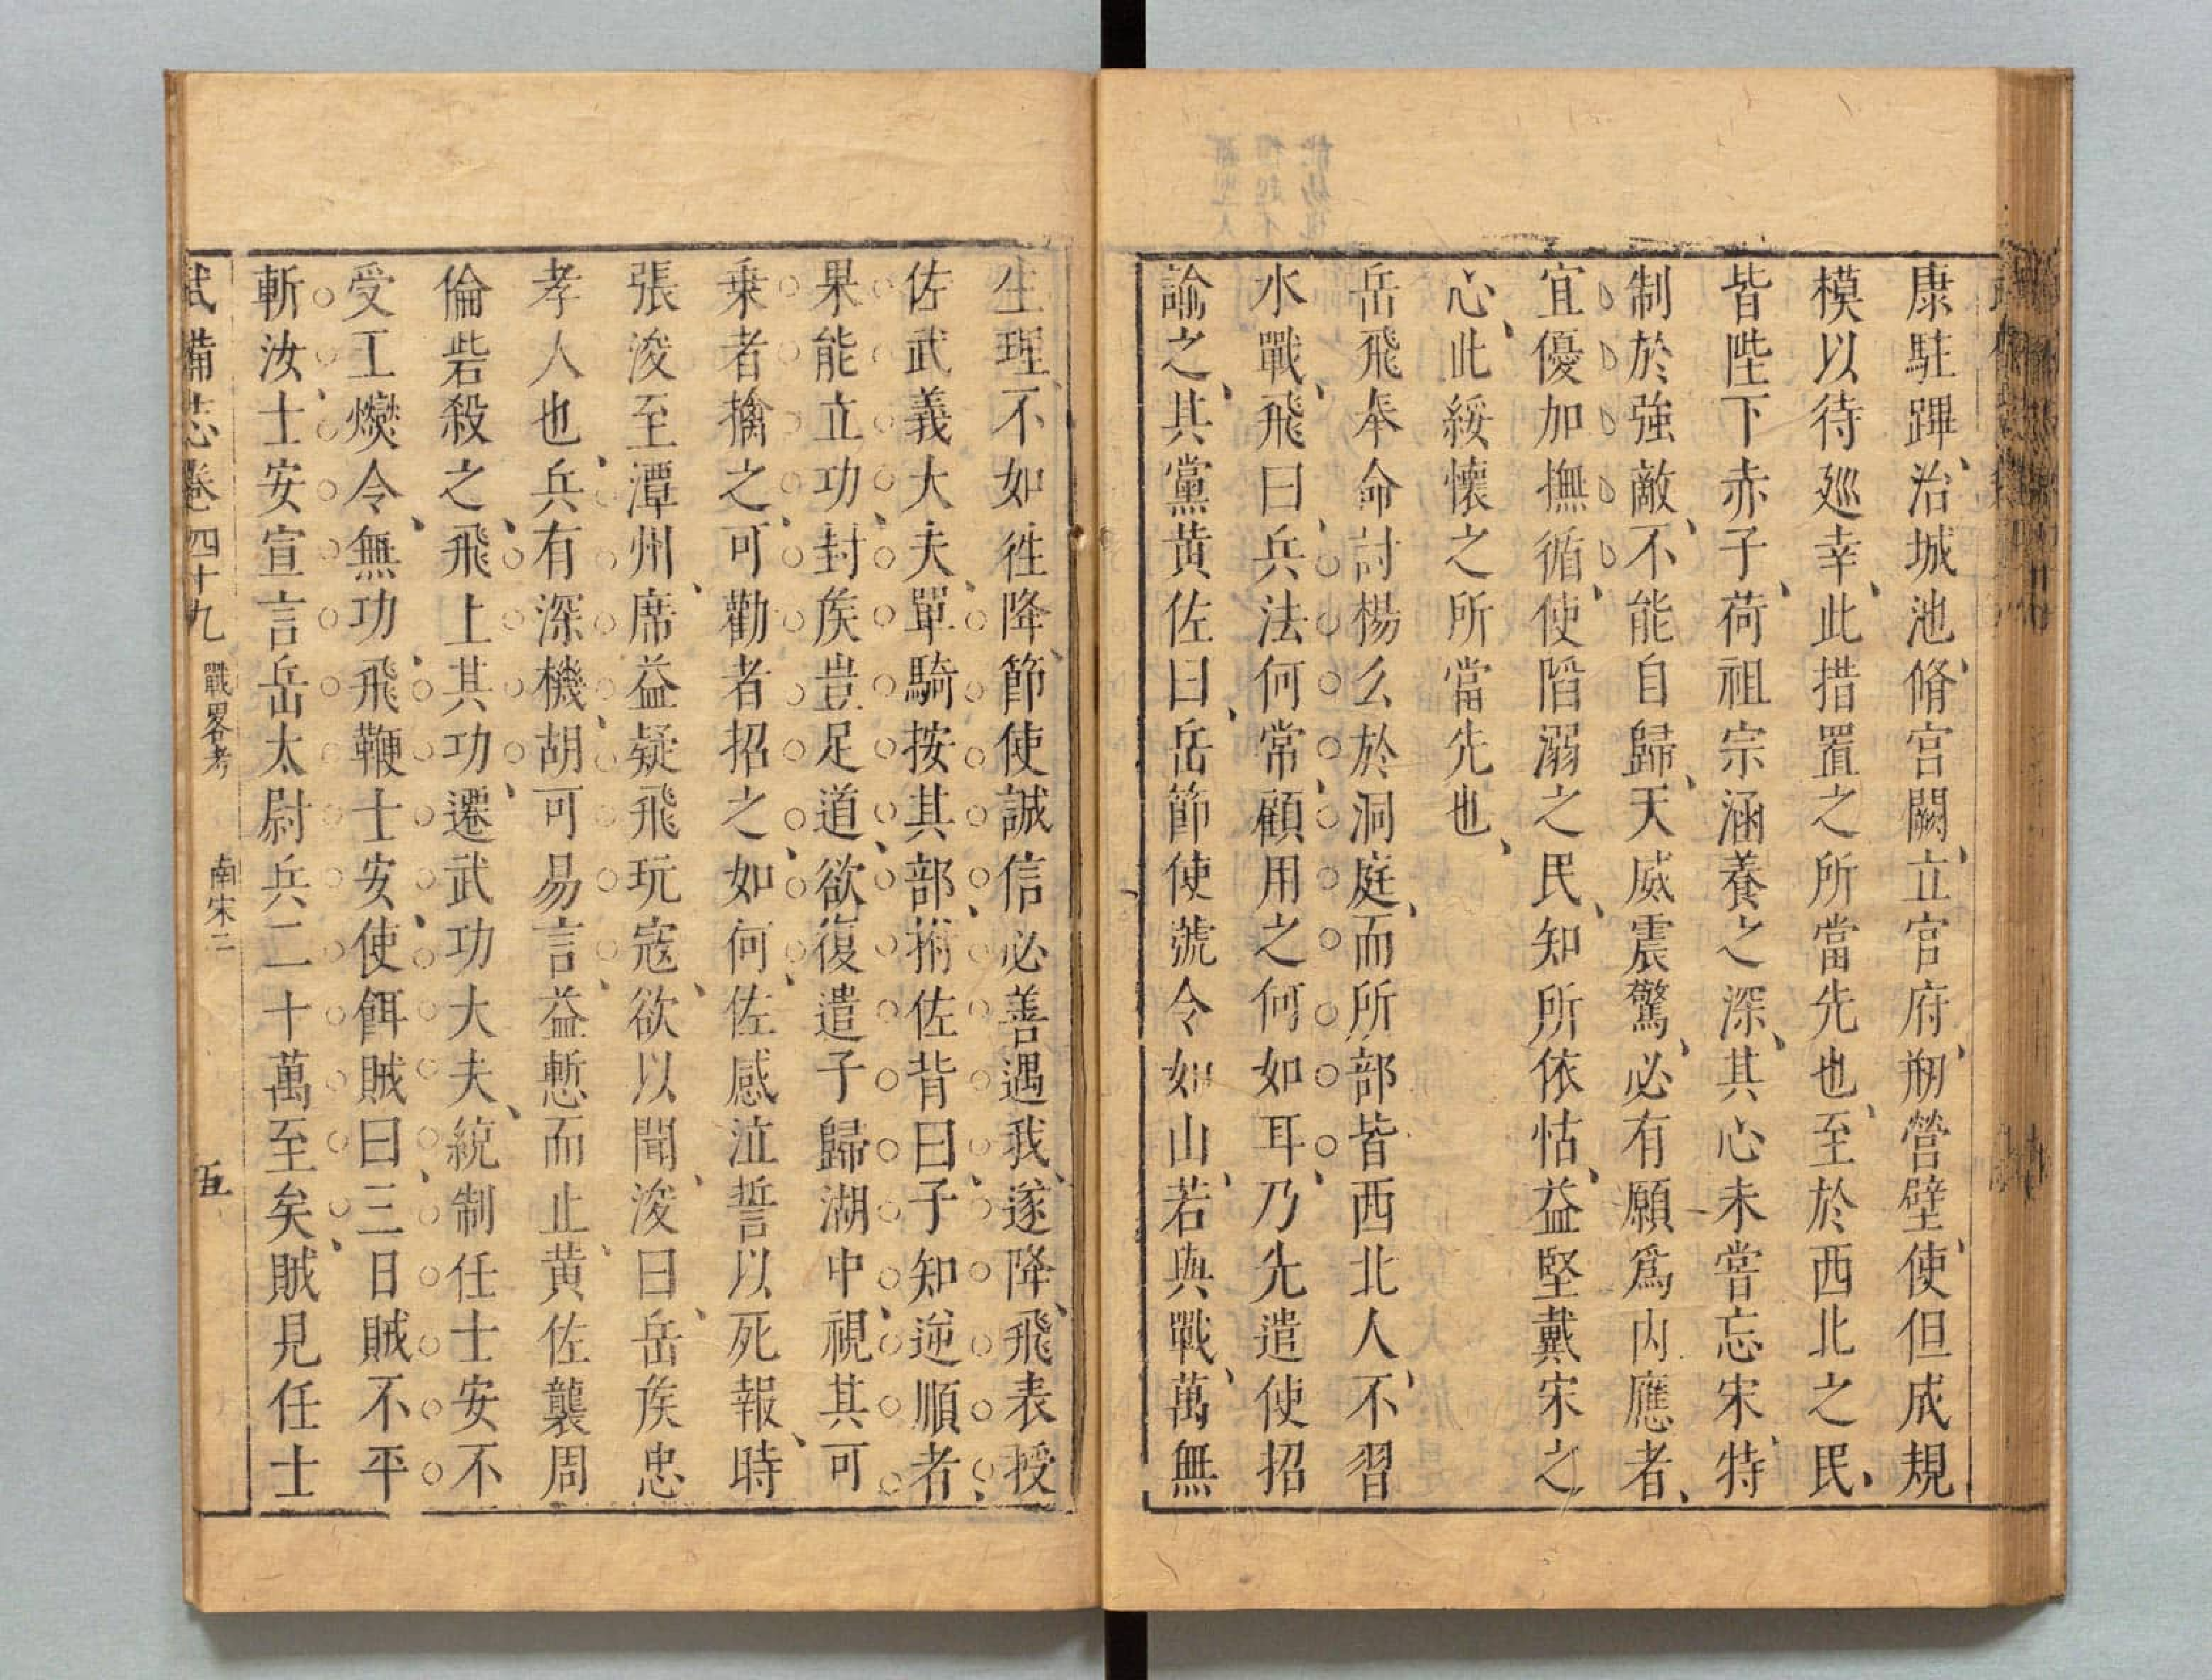 康駐蹕治城池脩宫闕立官府剏營壁使但成規
模以待廵幸此措置之所當先也至於西北之民
皆陛下赤子荷祖宗涵養之深其心未嘗忘宋特
制於強敵不能自歸天威震驚必有願爲内應者
宜優加撫循使陷溺之民知所依怙益堅戴宋之
心此綏懷之所當先也
岳飛奉命討楊么於洞庭而所部皆西北人不習
水戰飛曰兵法何常顧用之何如耳乃先遣使招
諭之其黨黄佐曰岳節使號令如山若與戰萬無
生理不如徃降節使誠信必善遇我遂降飛表授
佐武義大夫單騎按其部拊佐背曰子知逆順者
果能立功封矦豈足道欲復遣子歸湖中視其可
乗者擒之可勸者招之如何佐感泣誓以死報時
張浚至潭州席益疑飛玩寇欲以聞浚曰岳矦忠
孝人也兵有深機胡可易言益慙而止黄佐襲周
倫砦殺之飛上其功遷武功大夫統制任士安不
受王燮令無功飛鞭士安使餌賊曰三日賊不平
斬汝士安宣言岳太尉兵二十萬至矣賊見任士
武備志卷四十九 戰畧考 南宋二 五